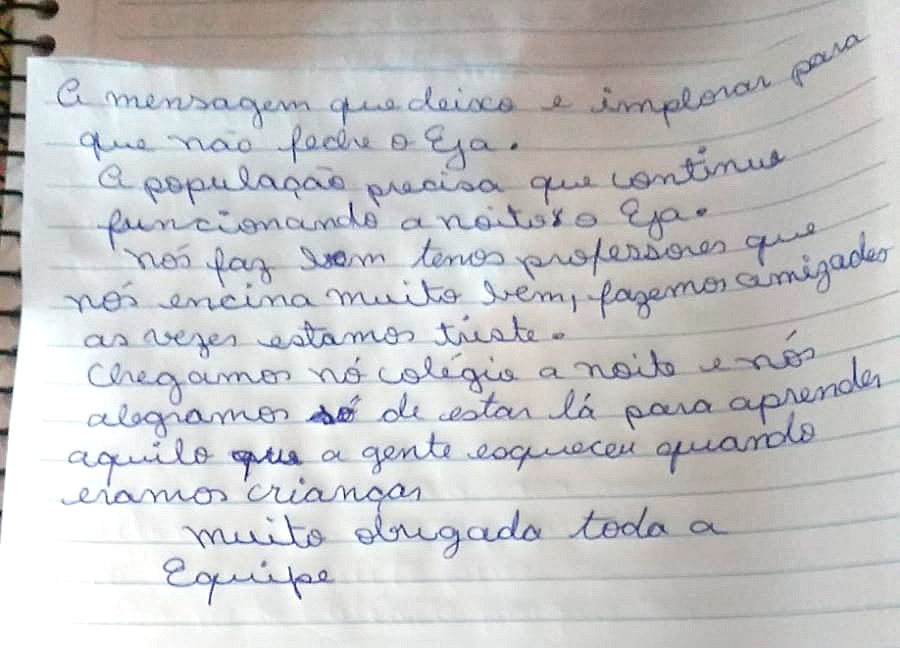 A mensagem que deixo e implorar para
que não feche o Eja.
A população precisa que continue
funcionando a noite o Eja.
nós faz bem temos professores que
nós encina muito bem, fazemos amizades
as vezes estamos triste.
Chegamos nó colégio a noite e nós
alegramos só de estar lá para aprender
aquilo que a gente esqueceu quando
eramos crianças
muito obrigada toda a
Equipe